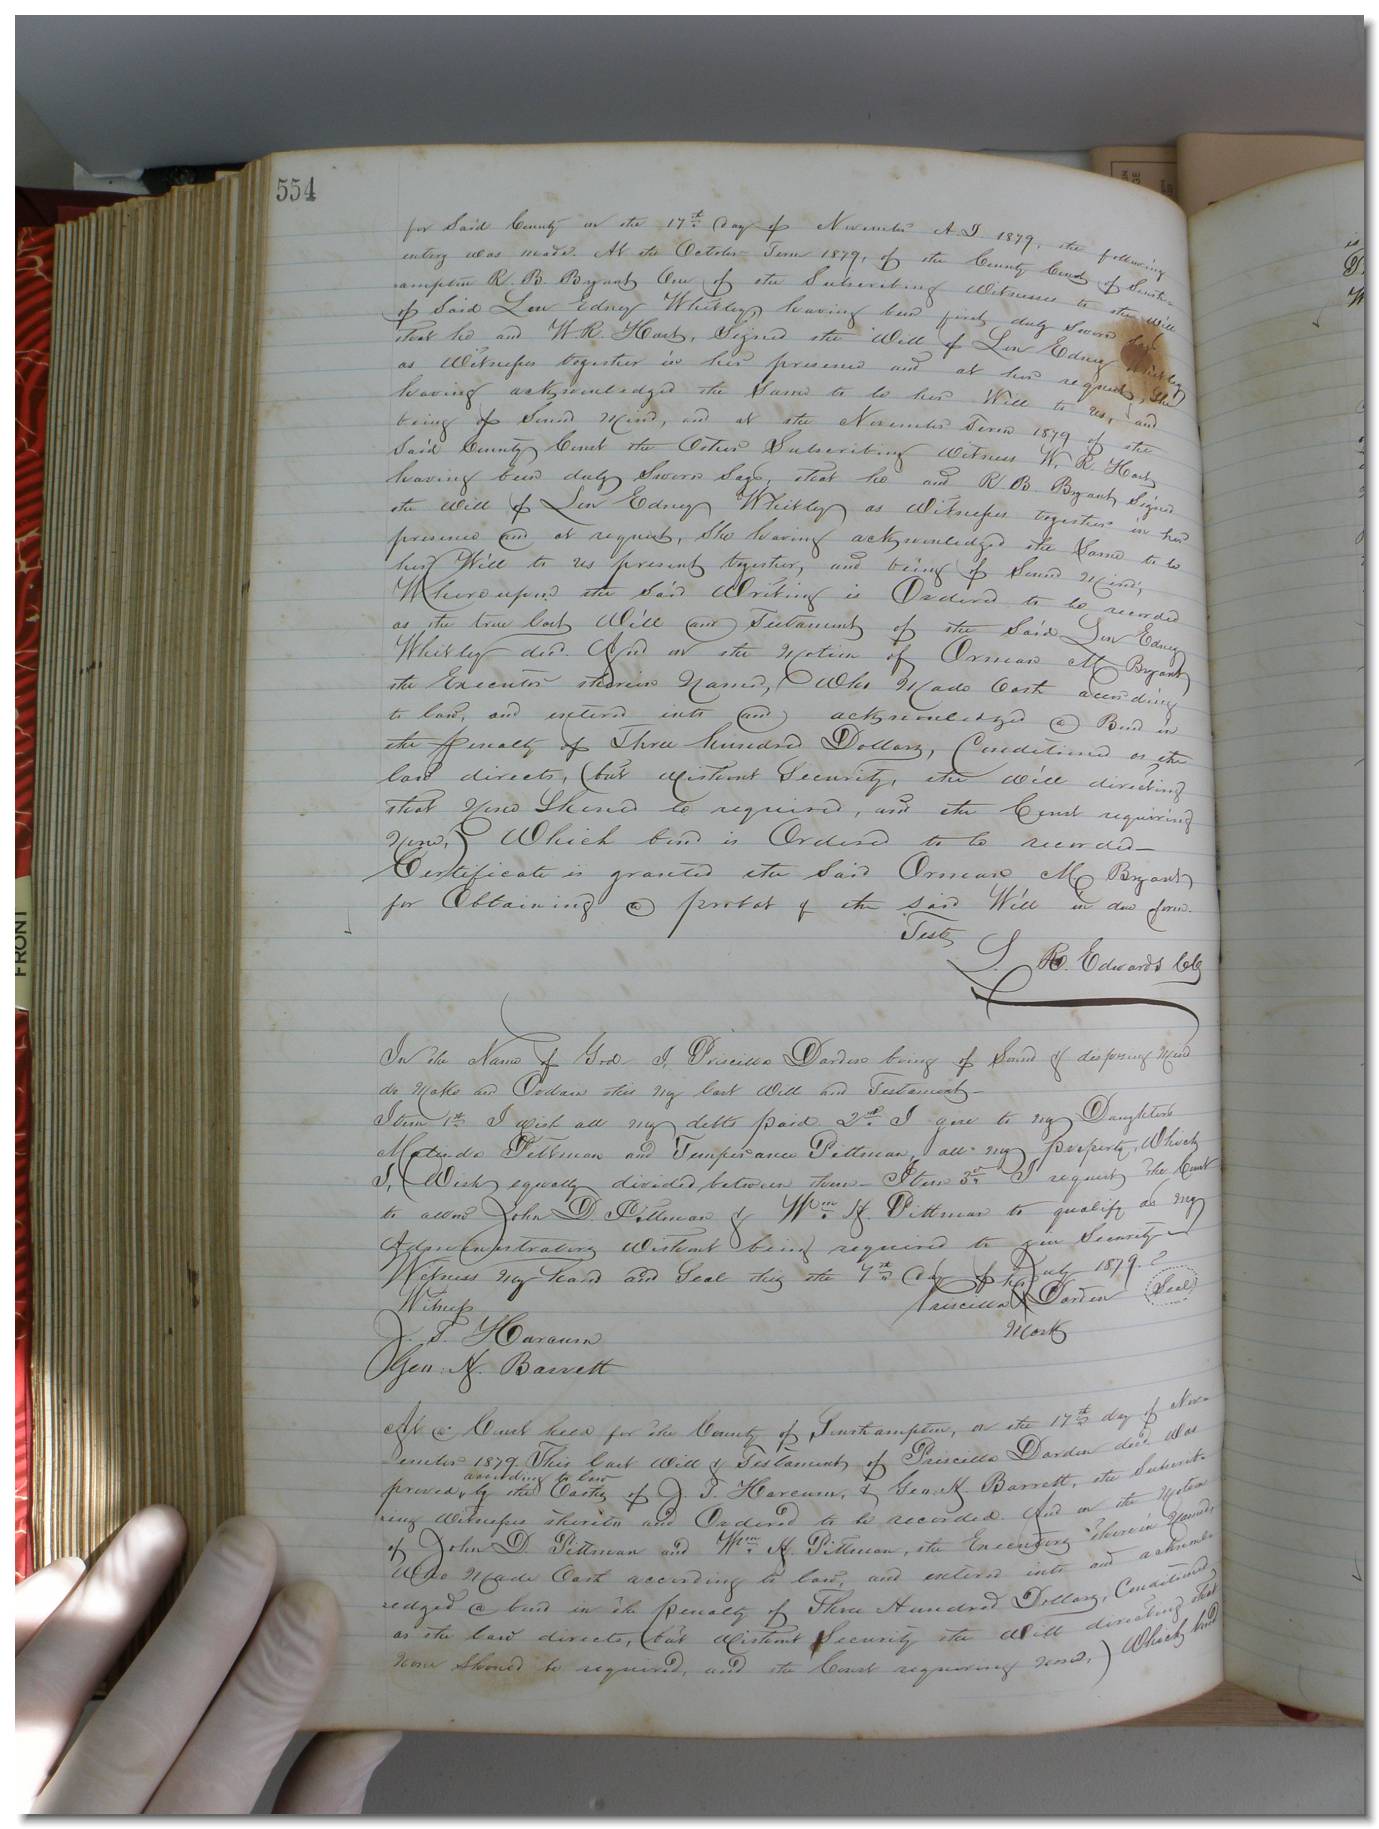 554
for Said County on the 17th day of November A.D. 1879, the following
entery was made. At the October Term 1879, of the County Court of South-
ampton R. B. Bryant One of the Subscribing Witnesses to the Will
of Said Len Edney Whitley, having been first duly Sworn
that he and W. R. Hart, Signed the Will of Len Edney Whitley
as Witnesses together in her presence and at her request, She
having acknowledged the Same to be her Will to us, and
being of Sound Mind, and at the November Term 1879 of the
Said County Court the Other Subscribing Witness W. R. Hart
having been duly Sworn Says, that he and R. B. Bryant Signed
the Will of Len Edney Whitley as Witnesses together in her
presence and at request, She having acknowledged the Same to be
her Will to us present together, and being of Sound Mind,
Whereupon the Said Writing is Ordered to be recorded
as the true last Will and Testament of the Said Len Edney
Whitley decd. And on the Motion of Orman M Bryant
the Executor therein Named, Who Made Oath according
to law, and entered into and acknowledged a Bond in
the penalty of Three hundred Dollars, Conditioned as the
law directs, (but without Security, the Will directing
that None Should be required, and the Court requiring
None,) Which bond is Ordered to be recorded—
Certificate is granted the Said Orman M Bryant
for Obtaining a probat of the said Will in due form.
Teste
L. R. Edwards Clk
In the Name of God I, Priscilla Darden being of Sound & disposing Mind
do Make and Ordain this my last Will and Testament—
Item 1st I wish all my debts paid 2nd I give to my Daughters
Matilda Pittman and Temperance Pittman, all my property, Which
I, Wish equally divided between them— Item 3rd I request the Court
to allow John D. Pittman & Wm H. Pittman to qualify as my
Administrators Without being required to give Security—
Witness my hand and Seal this the 7th day of July 1879.
Witness Priscilla her X Darden Seal
Mark
J. T. Harcum
Geo. H. Barrett
At a Court held for the County of Southampton, on the 17th day of Nov-
ember 1879 This last Will & Testament of Priscilla Darden decd. Was
according to law
proved, by the Oaths of J. T. Harcum, & Geo. H. Barrett, the Subscri-
bing Witnesses thereto and Ordered to be recorded. And on the Motion
of John D. Pittman and Wm H. Pittman, the Executors therein Named,
Who Made Oath according to law, and entered into and acknow-
ledged a bond in the penalty of Three Hundred Dollars, Conditioned,
as the law directs, (but without Security the Will directing that
None Should be required, and the Court requiring none,) Which bond
FRONT